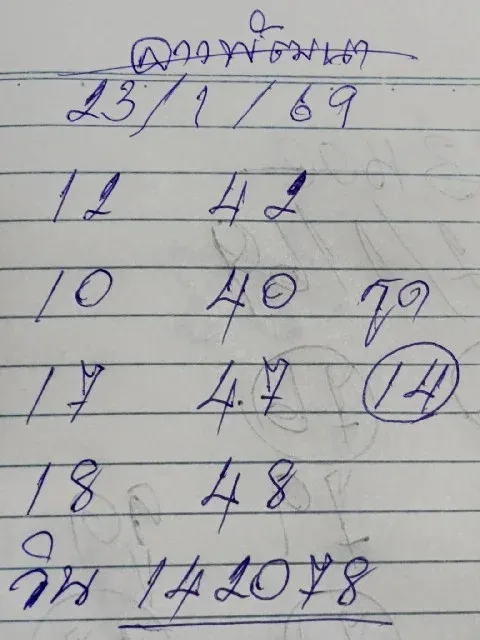 ลาวพัฒนา
23/1/69
12 42
10 40 รูด
17 47 14
18 48
วิน 142078